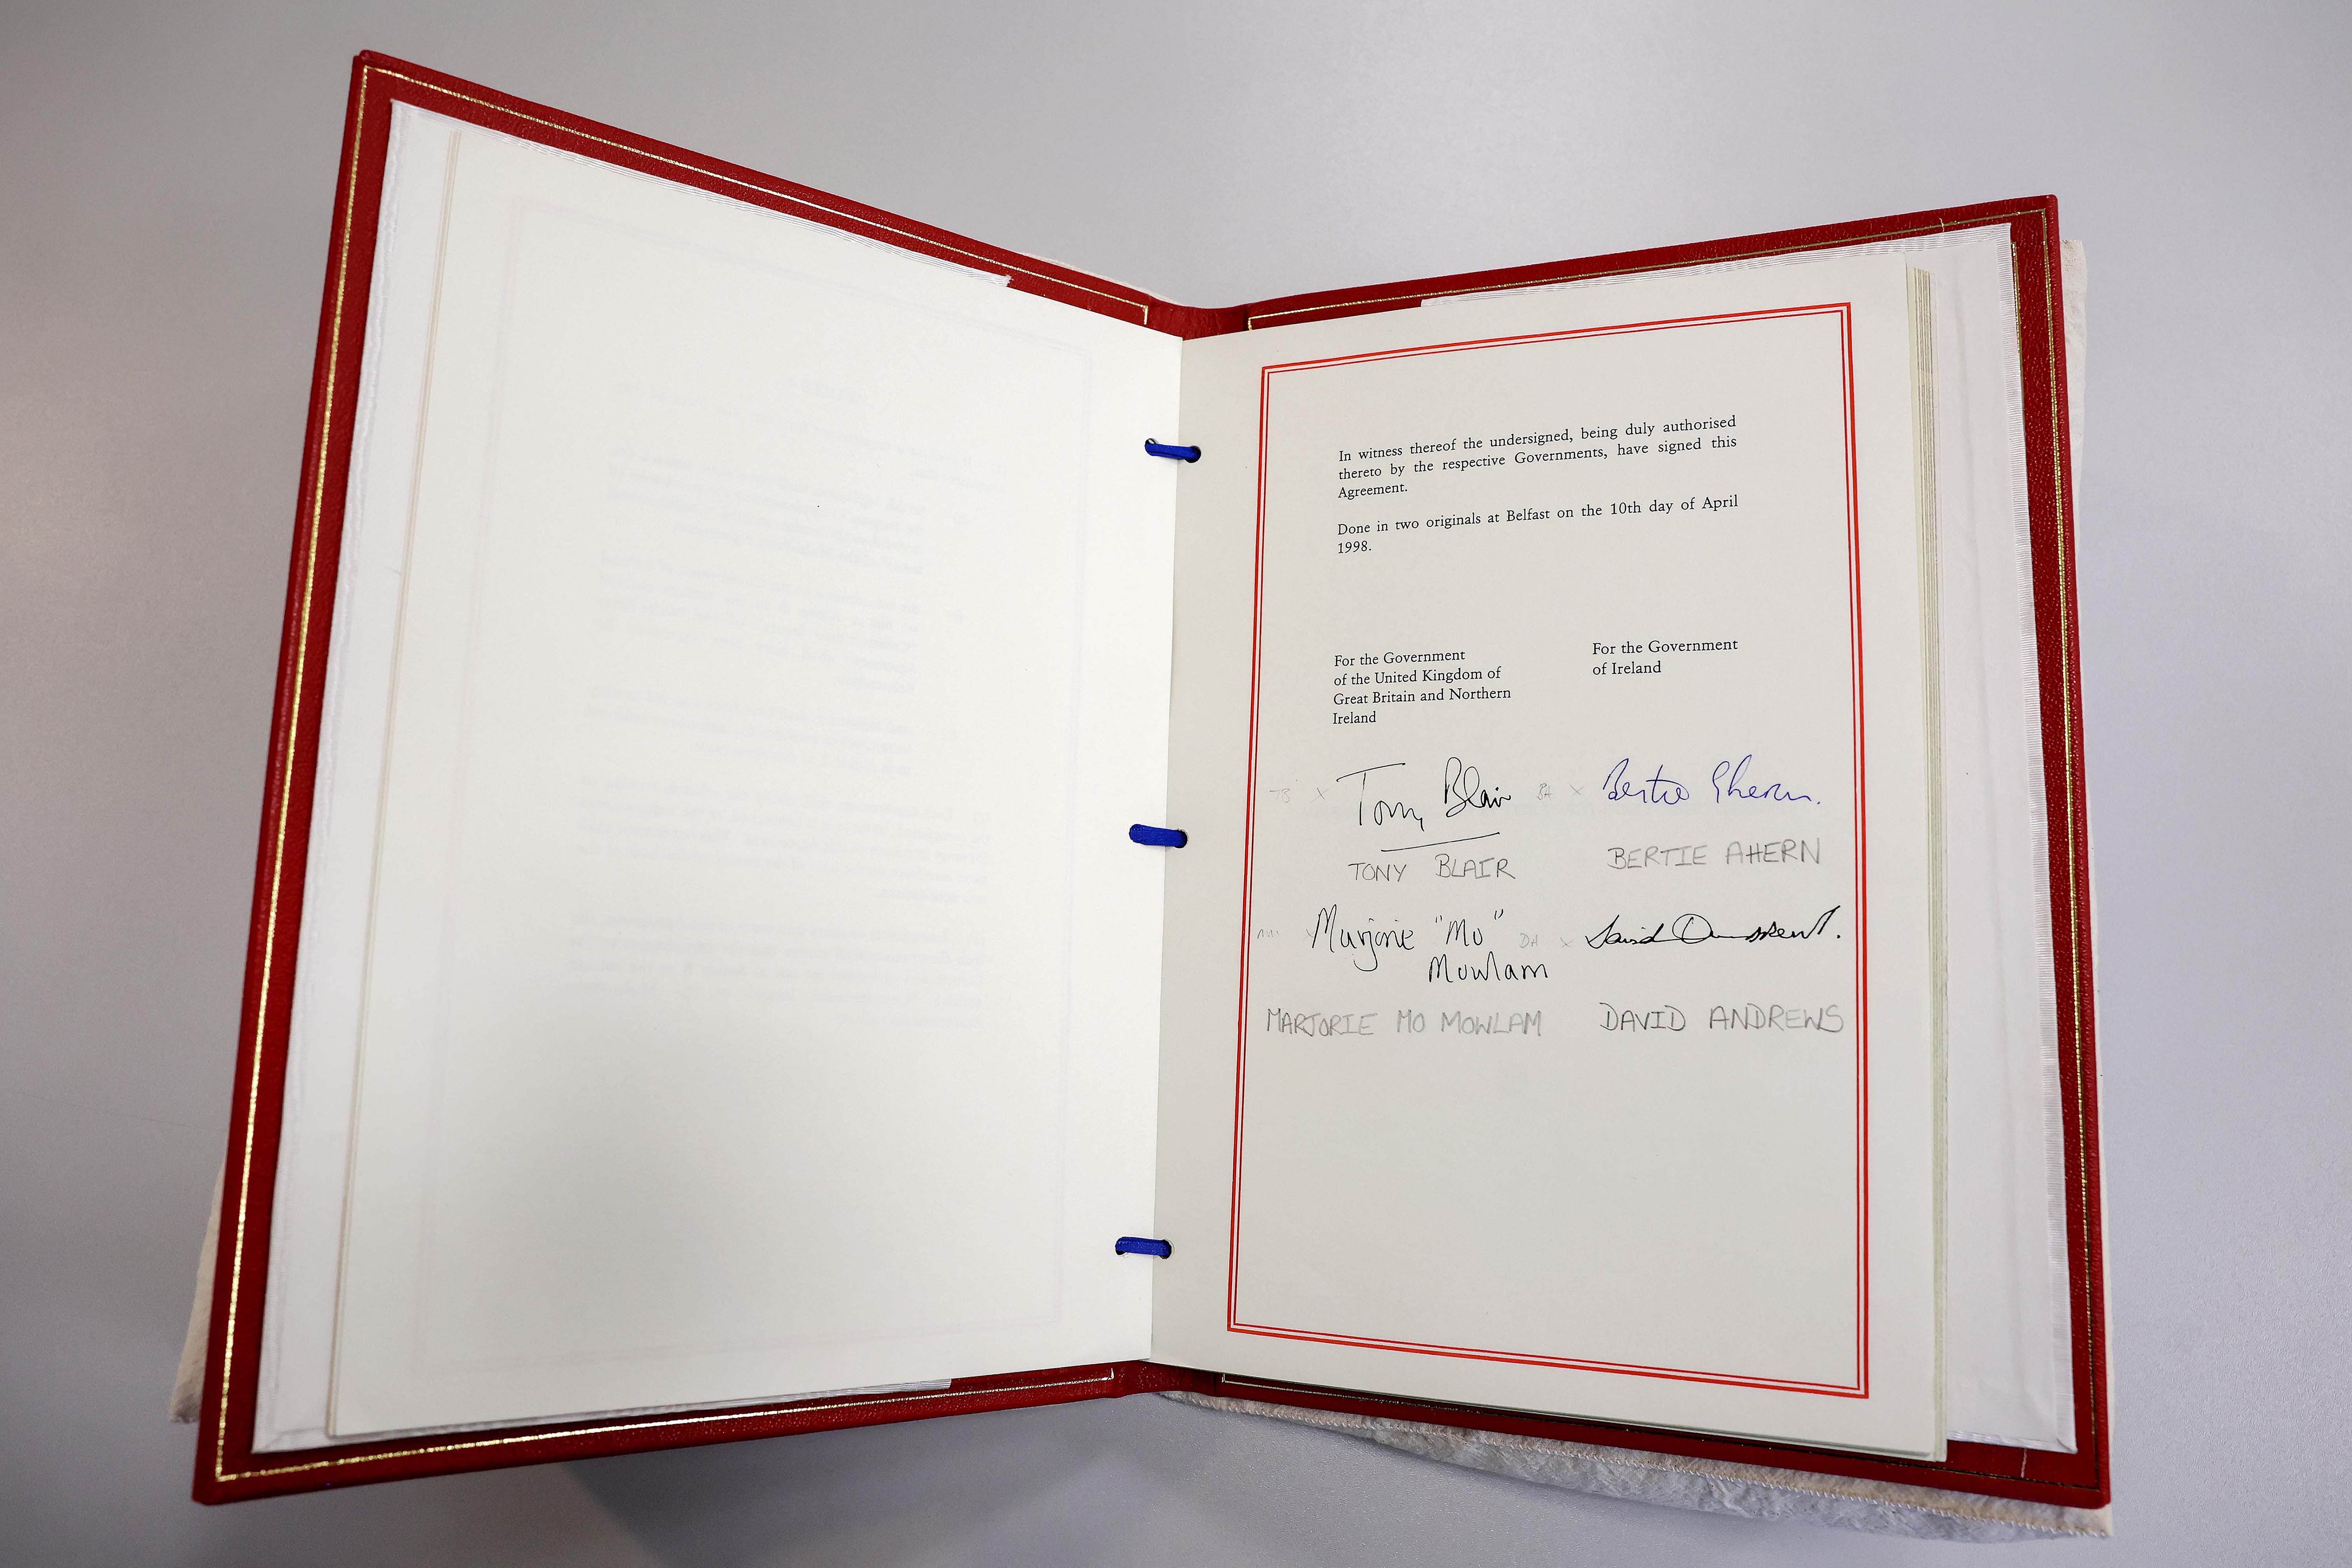 In witness thereof the undersigned, being duly authorised
thereto by the respective Governments, have signed this
Agreement.
Done in two originals at Belfast on the 10th day of April
1998.
For the Government
of the United Kingdom of
Great Britain and Northern
Ireland
For the Government
of Ireland
TB x Tony Blair
BA x Bertie Ahern.
TONY BLAIR
BERTIE AHERN
MM x Marjorie "Mo"
Mowlam
DA x David Andrews.
MARJORIE MO MOWLAM
DAVID ANDREWS